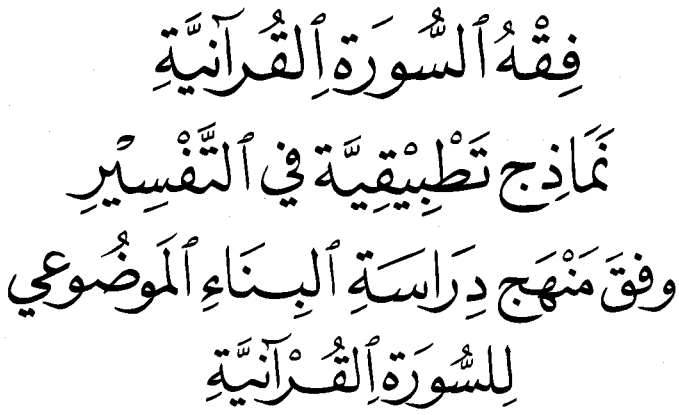 فِقْهُ ٱلسُّورَةِ ٱلقُرآنيَّةِ
نَمَاذِج تَطْبِيْقِيَّة في ٱلتَّفْسِيْرِ
وفقَ مَنْهَج دِرَاسَةِ ٱلبِنَاءِ ٱلمَوضُوعي
لِلسُّورَةِ ٱلقُرْآنيَّةِ